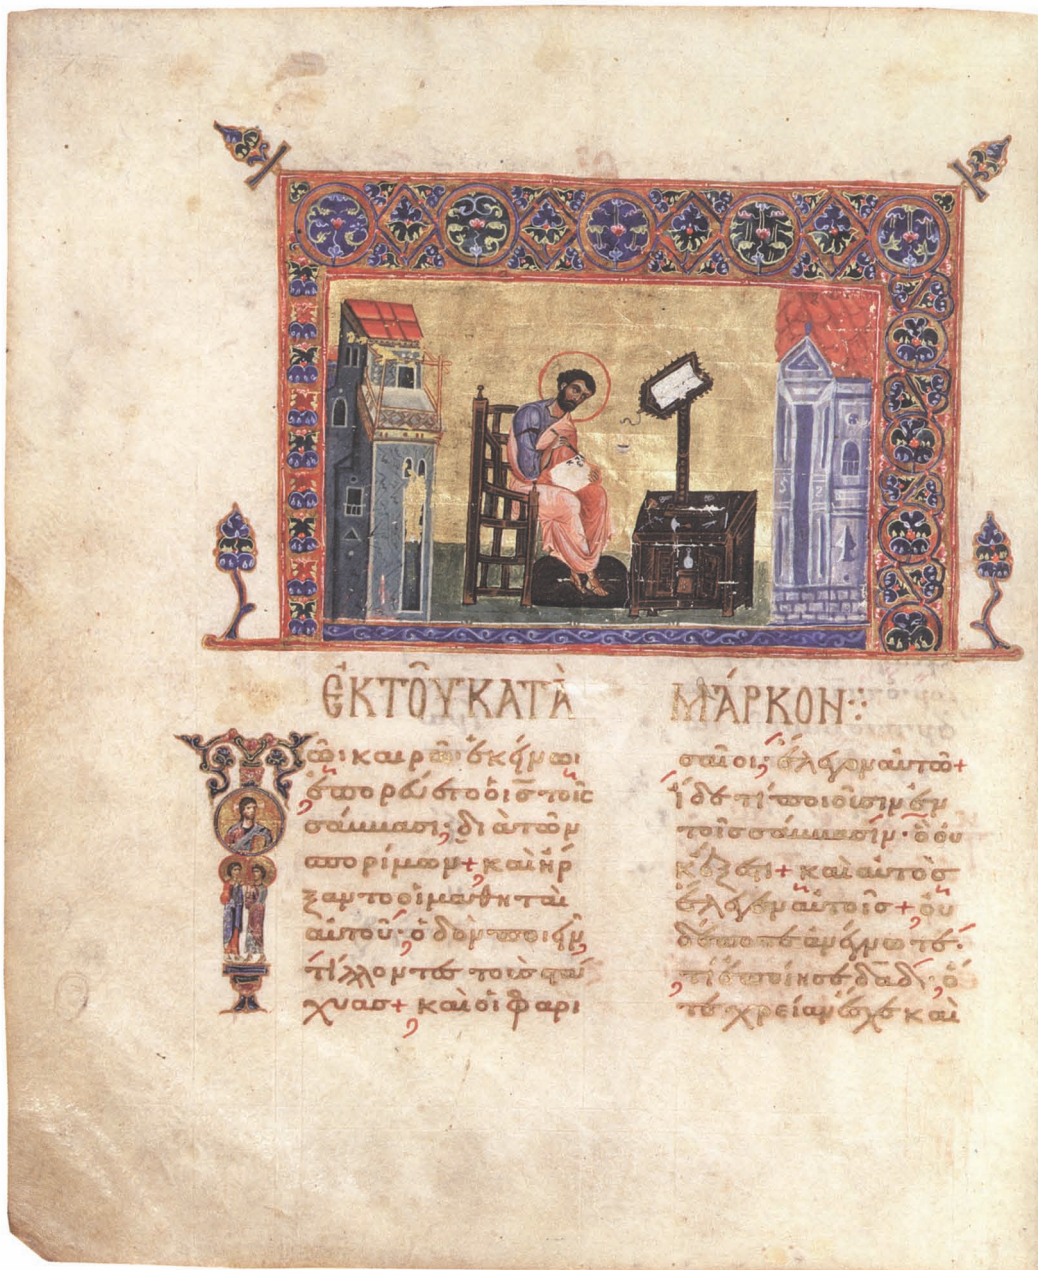 ἘΚ ΤΟῦ ΚΑΤᾺ ΜΆΡΚΟΝ
Τῶι καιρῶι ἐκείνωι
ἐπορεύετο ὁ ι̅ς̅ τοῖς
σάμμασι; διὰ τῶν
σπορίμων + καὶ ἤρ
ξαντο οἱ μαθηταὶ
αὐτοῦ, ὁδὸν ποιεῖν,
τίλλοντες τοὺς στά
χυας + καὶ οἱ φαρι
σαῖοι, ἔλεγον αὐτῶ +
ἴδε τί ποιοῦσιν ἐν
τοῖς σάμμασιν · ὃ οὐ
κ ἔξεστι + καὶ αὐτὸς
ἔλεγεν αὐτοῖς +, οὐ
δέποτε ἀνέγνωτε ·
τί ἐποίησε δα̅δ̅, ὅ
τε χρείαν ἔσχε καὶ